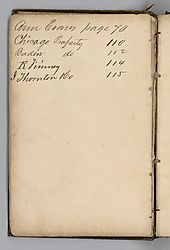 Ann Evans page 70
Chicago Property 110
Baden do 112
R Finney 114
J Thornton &Co 115